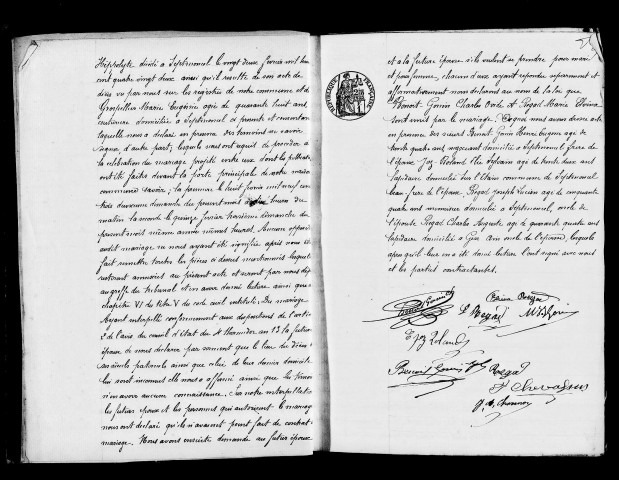 Hippolyte décédé à Septmoncel le vingt deux février mil huit
cent quatre vingt deux ainsi qu'il résulte de son acte de
décès vu par nous sur les registres de notre commune et de
Grospellier Marie Eugénie agée de quarante huit ans
domiciliée à Septmoncel ci présente et consentante
laquelle nous a déclaré en présence des témoins ne savoir
signer d'autre part; lesquels nous ont requis de procéder à
la célébration du mariage projeté entre eux dont les publications
ont été faites devant la porte principale de notre maison
commune savoir; la première le huit février mil neuf cent
trois deuxième dimanche du présent mois à heures du
matin la seconde le quinze février troisième dimanche du
présent mois même année mêmes heures. Aucune opposition
audit mariage ne nous ayant été signifiée après nous être
fait remettre toutes les pièces ci dessus mentionnées lesquelles
resteront annexées au présent acte et seront par nous déposées
au greffe du tribunal et en avoir donné lecture ainsi que du
chapitre VI du titre V du code civil intitulé: Du mariage
Ayant interpellé conformément aux dispositions de l'article
2 de l'avis du conseil d'état du 4 Thermidor an 13 la future
épouse de nous déclarer par serment que le lieu du décès
ses aïeuls paternels ainsi que celui de leur dernier domicile
lui sont inconnus elle nous a affirmé ainsi que les témoins
n'en avoir aucune connaissance. Sur notre interpellation
les futurs époux et les personnes qui autorisent le mariage
nous ont déclaré qu'ils n'avaient point fait de contrat de
mariage. Nous avons ensuite demandé au futur époux
et à la future épouse s'ils veulent se prendre pour mari
et pour femme, chacun d'eux ayant répondu séparément et
affirmativement nous déclarons au nom de la loi que
Benoit Gonin Charles et Regad Marie
sont unis par le mariage. De quoi nous avons dressé acte
en présence des sieurs Benoit Gonin Henri Eugène agé de
trente quatre ans négociant domicilié à Septmoncel frère de
l'époux Joz Roland Elie Sylvain agé de trente deux ans
lapidaire domicilié sur l'Etain commune de Septmoncel
beau-frère de l'époux Regad Joseph Lucien agé de cinquante
quatre ans menuisier domicilié à Septmoncel, oncle de
l'épouse Regad Charles Auguste agé de quarante quatre ans
lapidaire domicilié à Gex Ain oncle de l'épouse, lesquels
après qu'il leur en a été donné lecture l'ont signé avec nous
et les parties contractantes.
REPUBLIQUE FRANÇAISE
L Regad
E Joz Roland
Benoit Gonin
Regad